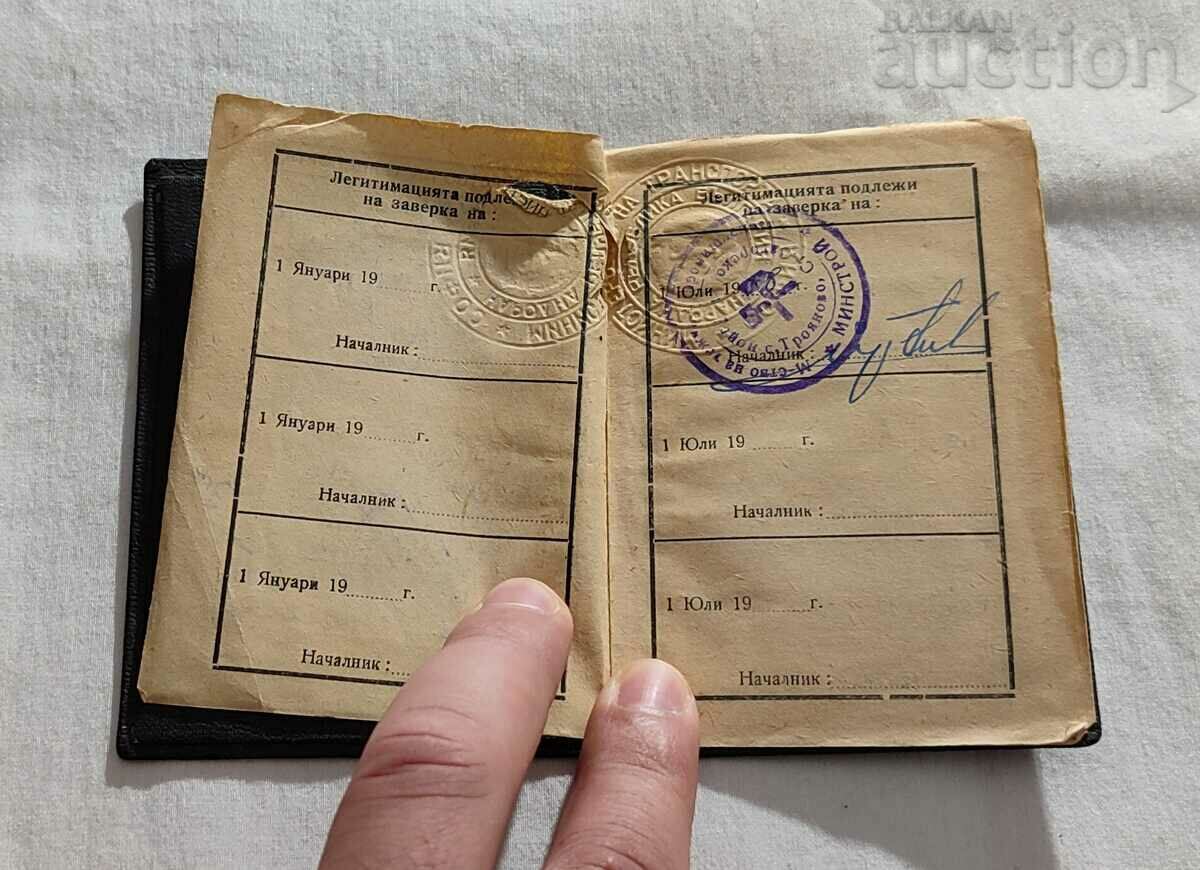 BALKAN
auction
Легитимацията подле
на заверка на :
1 Януари 19 г.
Началник :
1 Януари 19 г.
Началник :
1 Януари 19 г.
Началник :
Легитимацията подлежи
на заверка на :
1 Юли 19 г.
Началник :
1 Юли 19 г.
Началник :
1 Юли 19 г.
Началник :
М-ство на
МИНСТРОЙ
с. Трояново
НА ТРАНСПО
НАРОДНА